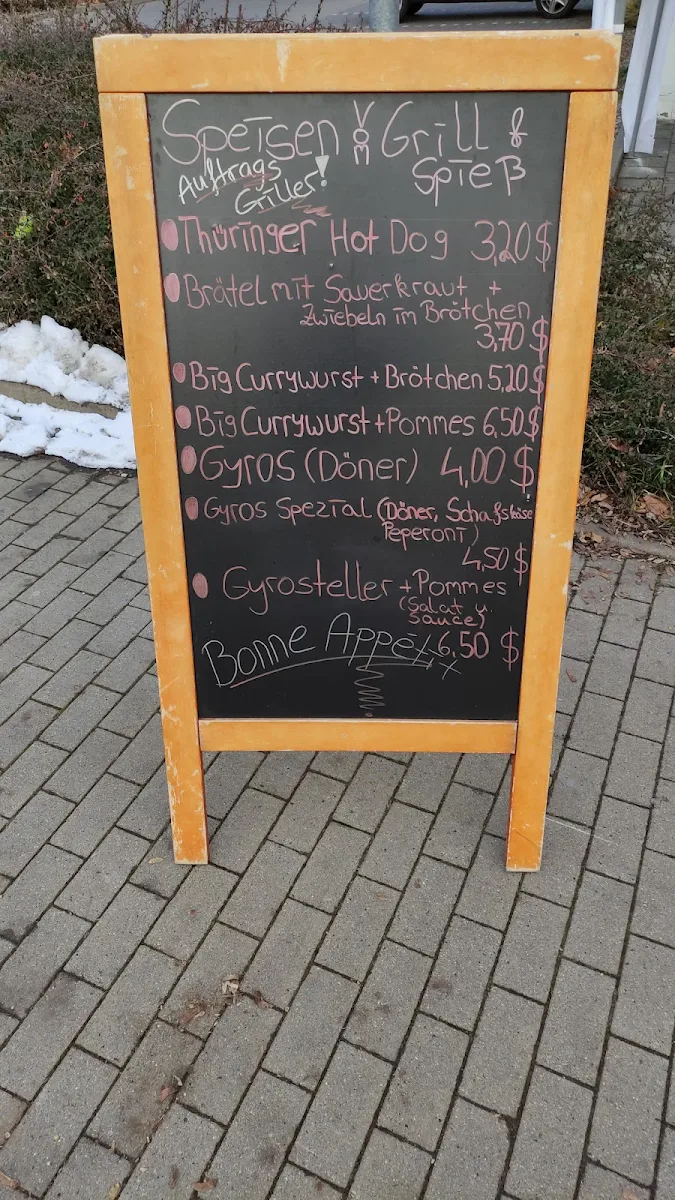 Speisen VOM Grill &
Auftrags Spieß
Griller!
Thüringer Hot Dog 3,20$
Brätel mit Sauerkraut +
Zwiebeln im Brötchen
3,70$
Big Currywurst + Brötchen 5,20$
Big Currywurst + Pommes 6,50$
Gyros (Döner) 4,00$
Gyros Spezial (Döner, Schafskäse
Peperoni)
4,50$
Gyrosteller + Pommes
(Salat u.
Sauce)
6,50$
Bonne Appétit